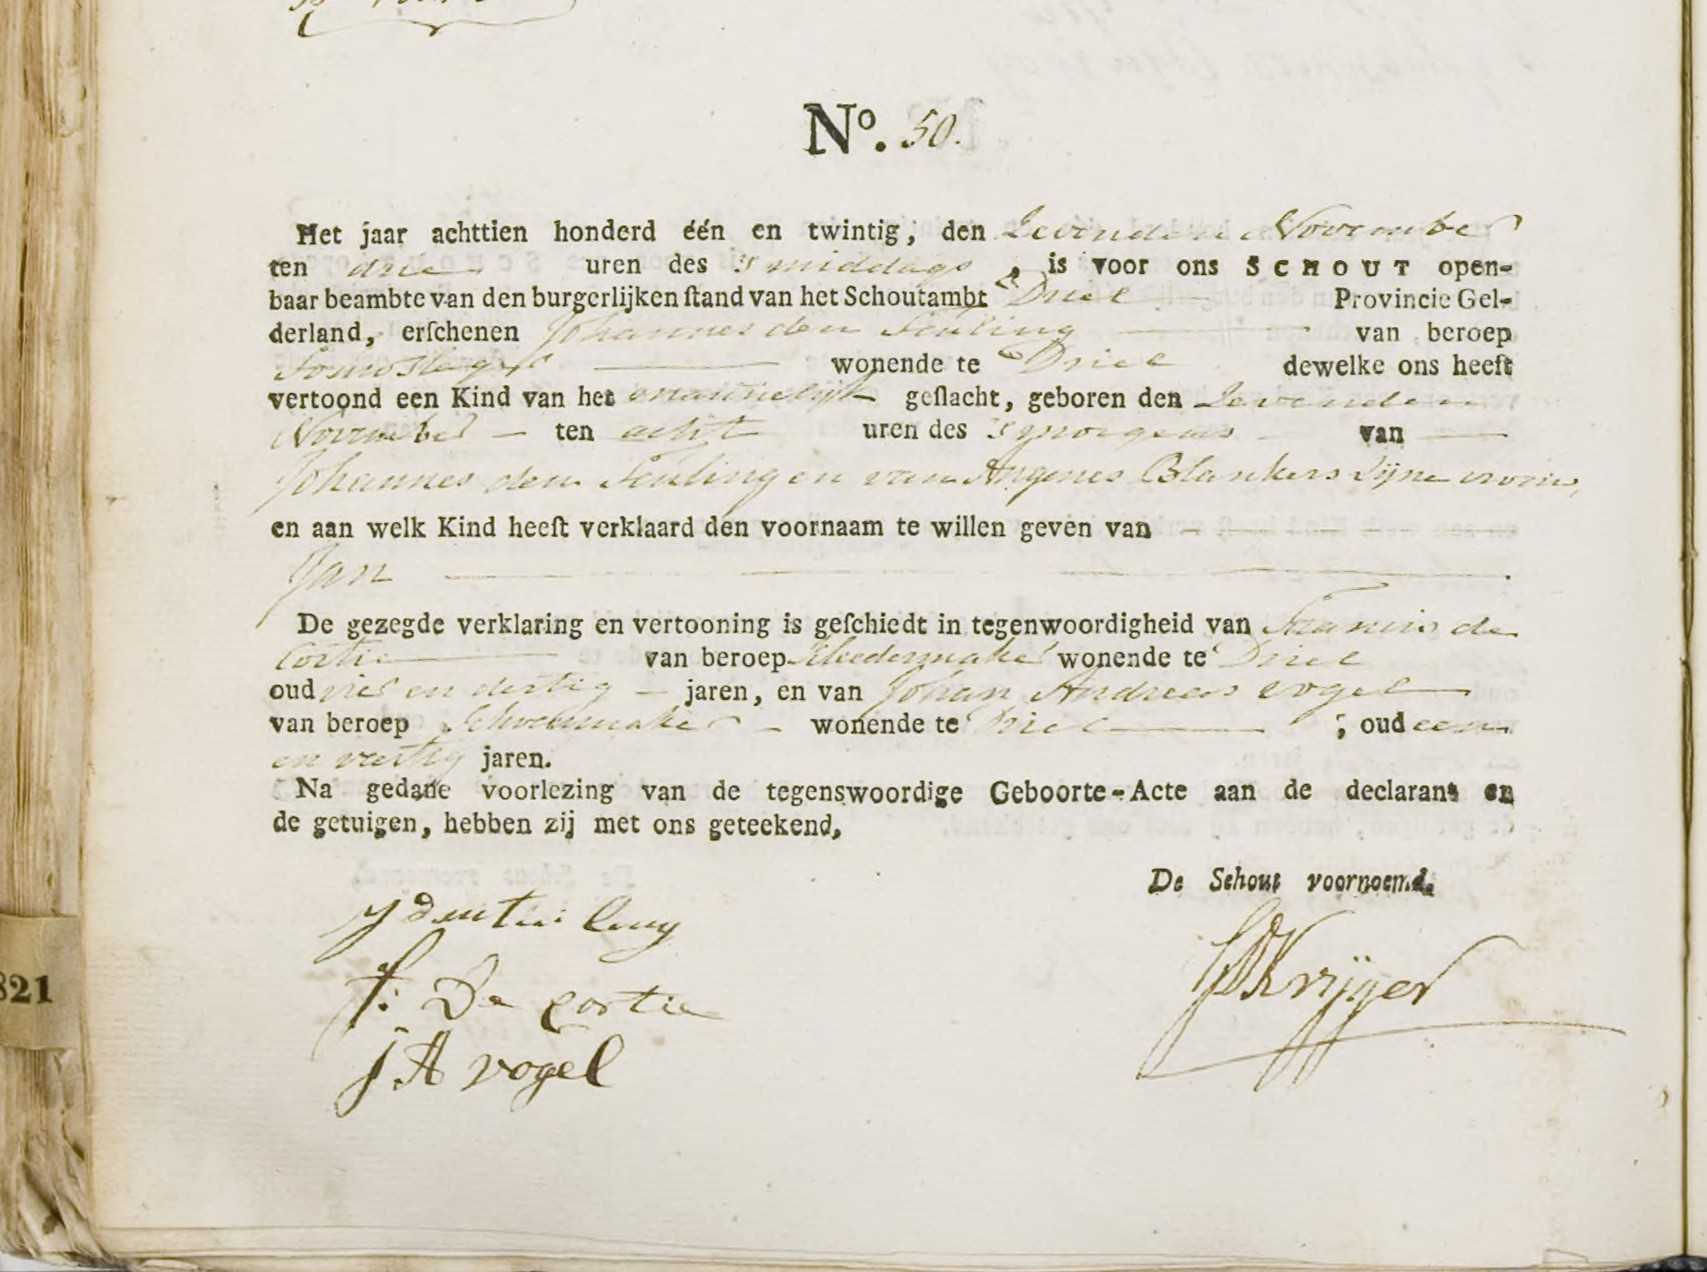 No. 50.
Het jaar achttien honderd één en twintig, den Zevenden November
ten drie uren des 's middags, is voor ons SCHOUT open-
baar beambte van den burgerlijken stand van het Schoutambt Driel Provincie Gel-
derland, erschenen Johannes den Teuling van beroep
wonende te Driel dewelke ons heeft
vertoond een Kind van het mannelijk geslacht, geboren den Zevenden
November ten acht uren des 's morgens van
Johannes den Teuling en van Angenes Blankers Zijne vrouw,
en aan welk Kind heeft verklaard den voornaam te willen geven van
Jan
De gezegde verklaring en vertooning is geschiedt in tegenwoordigheid van Francis de
Cortie van beroep Kleedermaker wonende te Driel
oud vier en dertig jaren, en van Johan Andreas Vogel
van beroep Schoenmaker wonende te Driel ; oud een
en veertig jaren.
Na gedane voorlezing van de tegenswoordige Geboorte-Acte aan de declarant en
de getuigen, hebben zij met ons geteekend,
De Schout voornoemd.
J den teuling
f: De cortie
J A vogel
Krijger
821